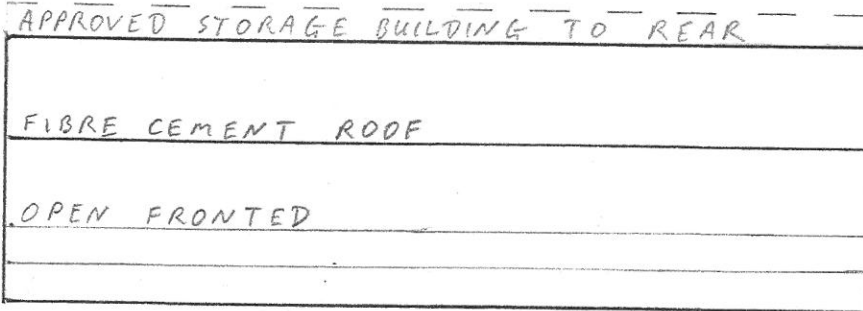 APPROVED STORAGE BUILDING TO REAR
FIBRE CEMENT ROOF
OPEN FRONTED